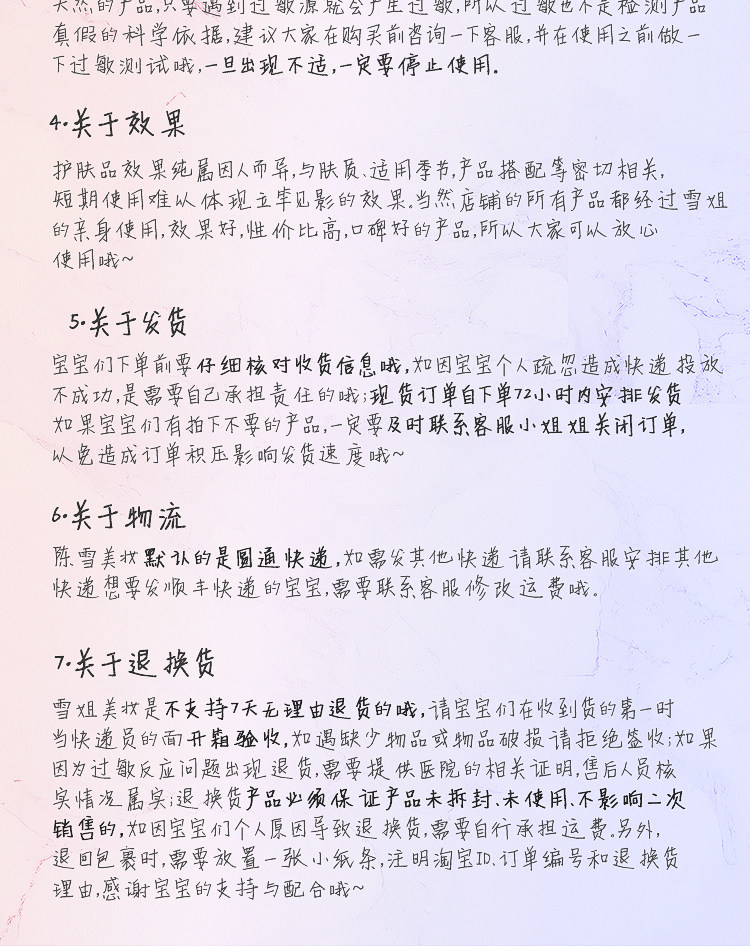 天然的产品,只要遇到过敏源就会产生过敏,所以过敏也不是检测产品
真假的科学依据,建议大家在购买前咨询一下客服,并在使用之前做一
下过敏测试哦,一旦出现不适,一定要停止使用.
4·关于效果
护肤品效果纯属因人而异,与肤质、适用季节,产品搭配等密切相关,
短期使用难以体现立竿见影的效果.当然店铺的所有产品都经过雪姐
的亲身使用,效果好,性价比高,口碑好的产品,所以大家可以放心
使用哦~
5·关于发货
宝宝们下单前要仔细核对收货信息哦,如因宝宝个人疏忽造成快递投放
不成功,是需要自己承担责任的哦;现货订单自下单72小时内安排发货
如果宝宝们有拍下不要的产品,一定要及时联系客服小姐姐关闭订单,
以免造成订单积压影响发货速度哦~
6·关于物流
陈雪美妆默认的是圆通快递,如需发其他快递请联系客服安排其他
快递想要发顺丰快递的宝宝,需要联系客服修改运费哦。
7·关于退换货
雪姐美妆是不支持7天无理由退货的哦,请宝宝们在收到货的第一时
当快递员的面开箱验收,如遇缺少物品或物品破损请拒绝签收;如果
因为过敏反应问题出现退货,需要提供医院的相关证明,售后人员核
实情况属实;退换货产品必须保证产品未拆封、未使用、不影响二次
销售的,如因宝宝们个人原因导致退换货,需要自行承担运费.另外,
退回包裹时,需要放置一张小纸条,注明淘宝ID、订单编号和退换货
理由,感谢宝宝的支持与配合哦~